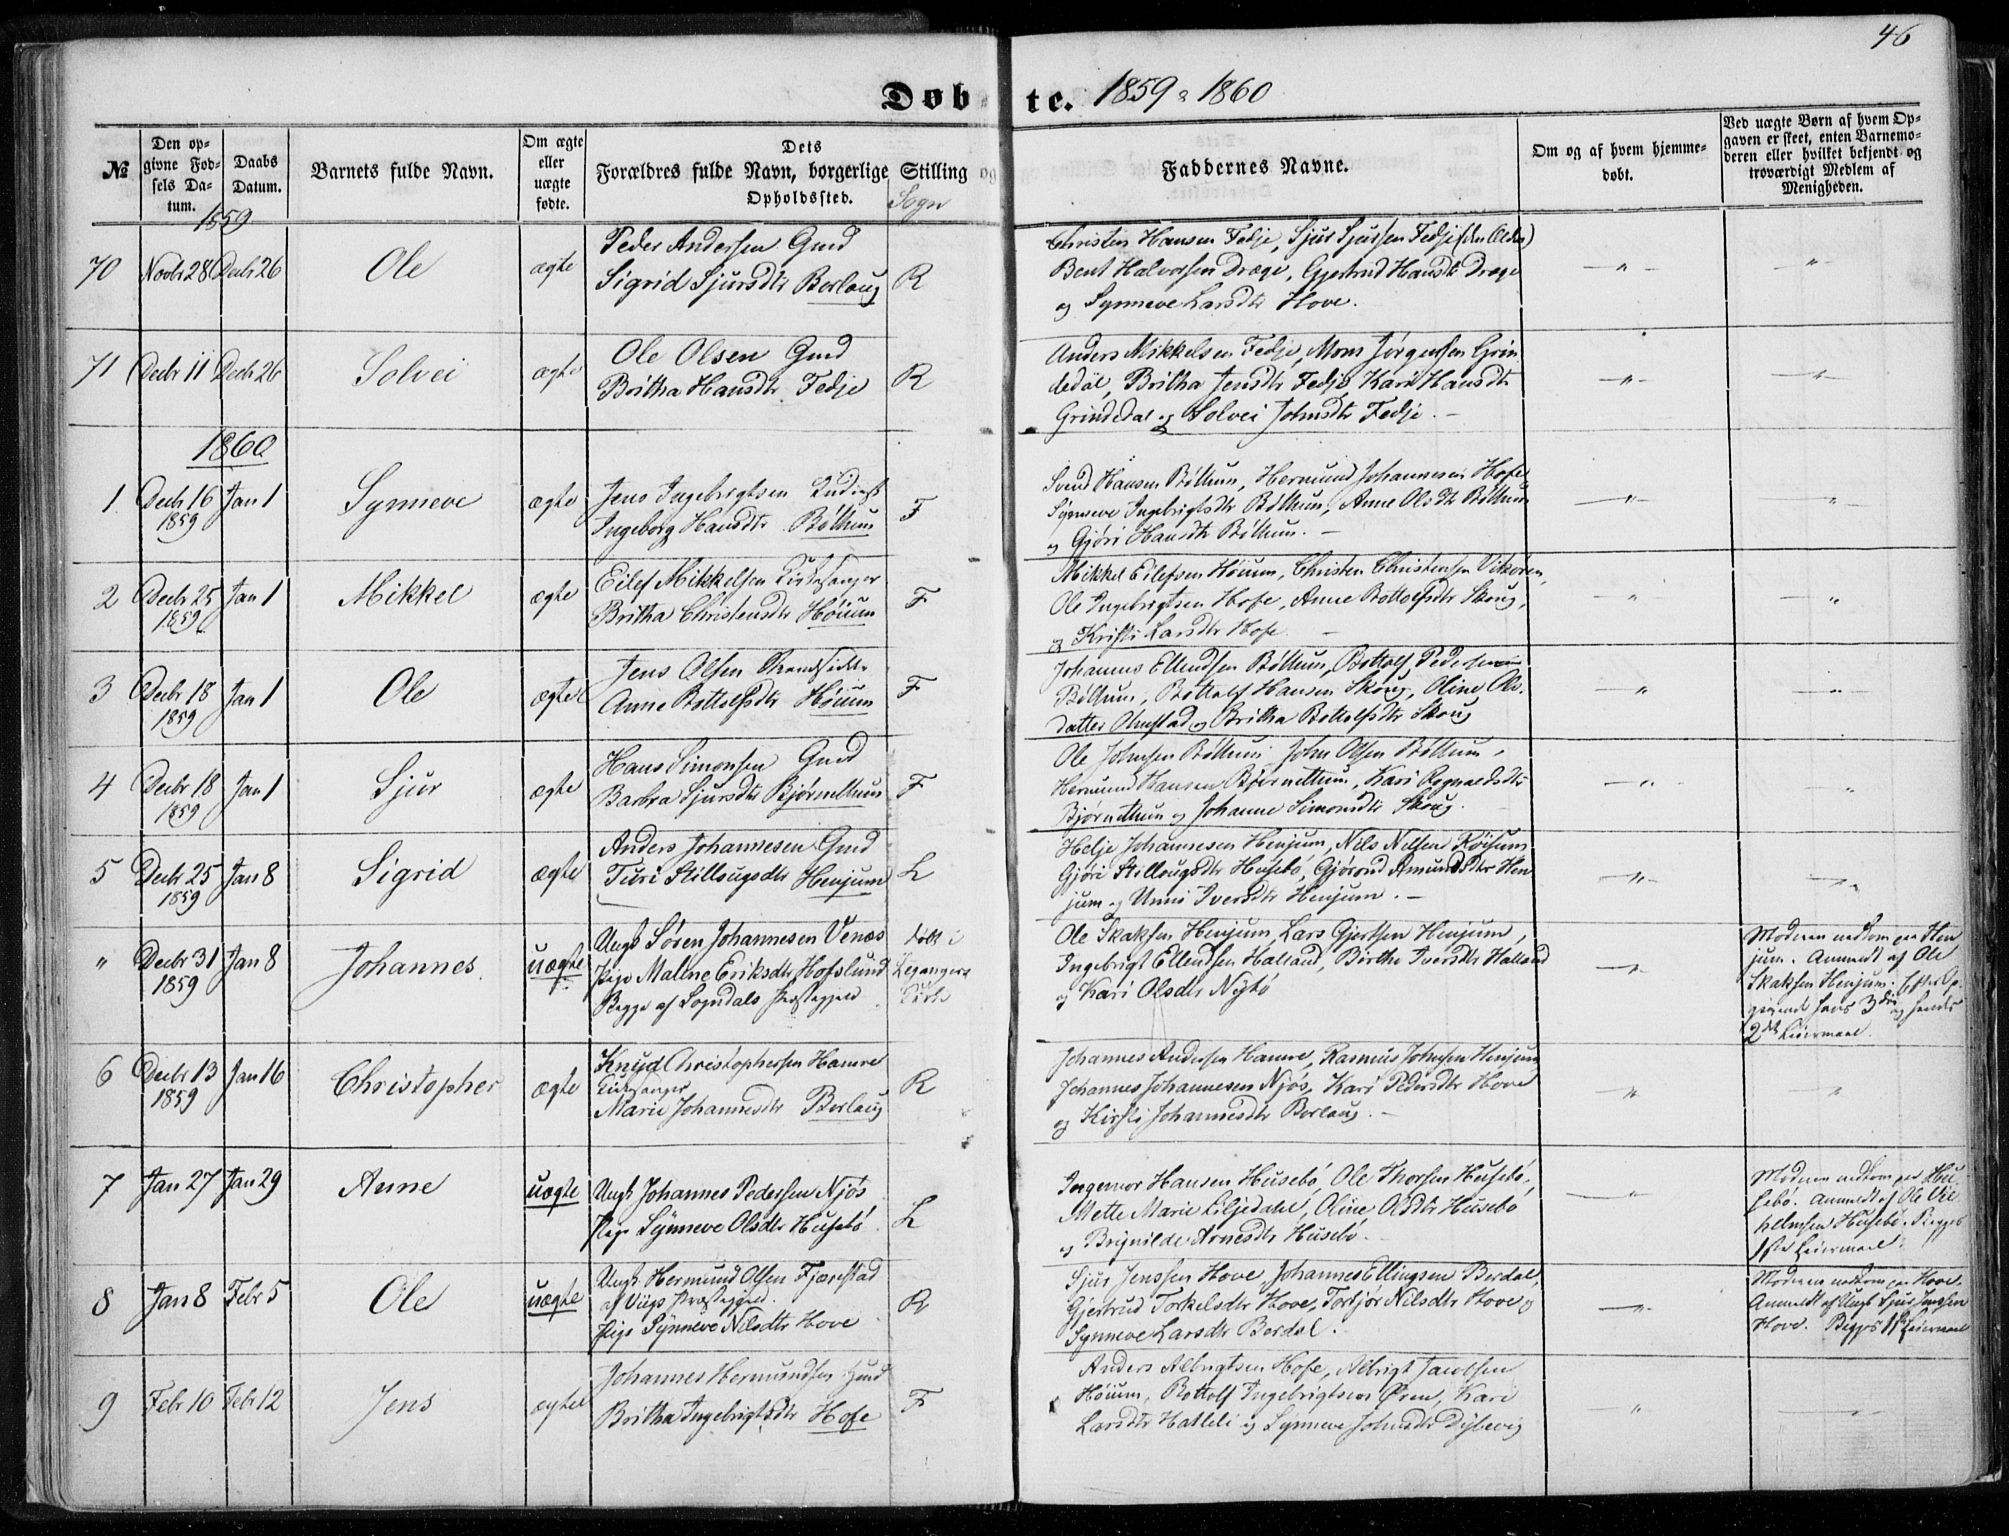 46
Døbte. 1859 & 1860
№
Den opgivne Fødsels Datum.
Daabs Datum.
Barnets fulde Navn.
Om ægte eller uægte fødte.
Dets Forældres fulde Navn, borgerlige Stilling og Opholdssted.
Sogn
Faddernes Navne.
Om og af hvem hjemmedøbt.
Ved uægte Børn af hvem Opgaven er skeet, enten Barnemoderen eller hvilket bekjendt og troværdigt Medlem af Menigheden.
1859
70 Novbr 28 Decbr 26 Ole ægte
Peder Andersen Gmd
Sigrid Sjursdtr Borlaug R
Christen Hansen Fedje, Sjur Sjursen Fedje (den Ældre)
Bent Halvorsen Drægе, Gjertrud Hansdtr Dræge
og Synneve Larsdtr Hove.
71 Decbr 11 Decbr 26 Solvei ægte
Ole Olsen Gmd
Britha Hansdtr Fedje R
Anders Mikkelsen Fedje, Mons Jørgensen Grin
dedal, Britha Jensdtr Fedje Kari Hansdtr
Grindedal og Solvei Johnsdtr Fedje.
1860
1 Decbr 16 1859 Jan 1 Synneve ægte
Jens Ingebrigtsen
Ingeborg Hansdtr Bøthun F
Svend Hansen Bøthun, Hermund Johannesen Hofe
Synneve Ingebrigtsdtr Bøthun, Anne Olsdtr Bøthun
og Gjøri Hansdtr Bøthun.
2 Decbr 25 1859 Jan 1 Mikkel ægte
Eilef Mikkelsen Kirkesanger
Britha Christensdtr Høium F
Mikkel Eilefsen Høium, Christen Christensen Vikøren,
Ole Ingebrigtsen Hofe, Anne Bottolfsdtr Skoug,
og Kristi Larsdtr Hofe.
3 Decbr 18 1859 Jan 1 Ole ægte
Jens Olsen Strandsidder
Anne Bottolfsdtr Høium F
Johannes Ellendsen Bøthun, Bottolf Pedersen
Bøthun, Bottolf Hansen Skoug, Oline Ols
datter Ølmstad og Britha Bottolfsdtr Skoug
4 Decbr 18 1859 Jan 1 Sjur ægte
Hans Simonsen Gmd
Barbra Sjursdtr Bjørnethun F
Ole Johnsen Bøthun, John Olsen Bøthun,
Hermund Hansen Bjørnethun, Kari Rognaldsdtr
Bjørnethun og Johanne Simonsdtr Skoug.
5 Decbr 25 1859 Jan 8 Sigrid ægte
Anders Johannesen Gmd
Turi Stillougsdtr Henjum L
Helje Johannesen Henjum, Nils Nilsen Røisum
Gjøri Stillougsdtr Husebø, Gjørond Amundsdtr Hen
jum og Unni Iversdtr Henjum.
" Decbr 31 1859 Jan 8 Johannes uægte
Ungk Søren Johannesen Venæs
Pige Malene Eriksdtr Hofslund
Begge af Sogndals Præstegjeld
døbt i Leganger Kirke
Ole Skaksen Henjum, Lars Gjertsen Henjum,
Ingebrigt Ellendsen Halland, Birthe Iversdtr Halland
og Kari Olsdtr Nybø
Moderen nedkom paa Hen
jum. Anmeldt af Ole
Skaksen Henjum. Efter Op
givende hans 3die og hendes
2det Leiermaal.
6 Decbr 13 1859 Jan 16 Christopher ægte
Knud Christophersen Hamre
Kirkesanger
Marie Johannesdtr Borlaug R
Johannes Andersen Hamre, Rasmus Johnsen Henjum
Johannes Johannesen Njøs, Kari Pedersdtr Hove
og Kirsti Johannesdtr Borlaug.
7 Jan 27 Jan 29 Anne uægte
Ungk Johannes Pedersen Njøs
Pige Synneve Olsdtr Husebø L
Ingemor Hansen Husebø, Ole Thorsen Husebø,
Mette Marie Liljedahl, Oline Olsdtr Husebø
og Brynilde Arnesdtr Husebø.
Moderen nedkom paa Hu
sebø. Anmeldt af Ole Vil
helmsen Husebø. Begges
1ste Leiermaal.
8 Jan 8 Febr 5 Ole uægte
Ungk Hermund Olsen Fjærestad
af Viigs Præstegjeld.
Pige Synneve Nilsdtr Hove R
Sjur Jenssen Hove, Johannes Ellingsen Berdal,
Gjertrud Torkelsdtr Hove, Torbjør Nilsdtr Hove og
Synneve Larsdtr Berdal.
Moderen nedkom paa Hove.
Anmeldt af Ungk Sjur Jenssen
Hove. Begges 1ste Leiermaal
9 Febr 10 Febr 12 Jens ægte
Johannes Hermundsen Gmd
Britha Ingebrigtsdtr Hofe F
Anders Albrigtsen Hofe, Albrigt Jacobsen
Høium, Bottolf Ingebrigtsen Øren, Kari
Larsdtr Hatleli og Synneve Johnsdtr Dybevig